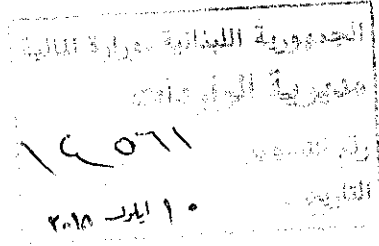 الجمهورية اللبنانية - وزارة المالية
مديرية الواردات
رقم
١٤٥٦١
التاريخ ١٠ ايلول ٢٠١٨